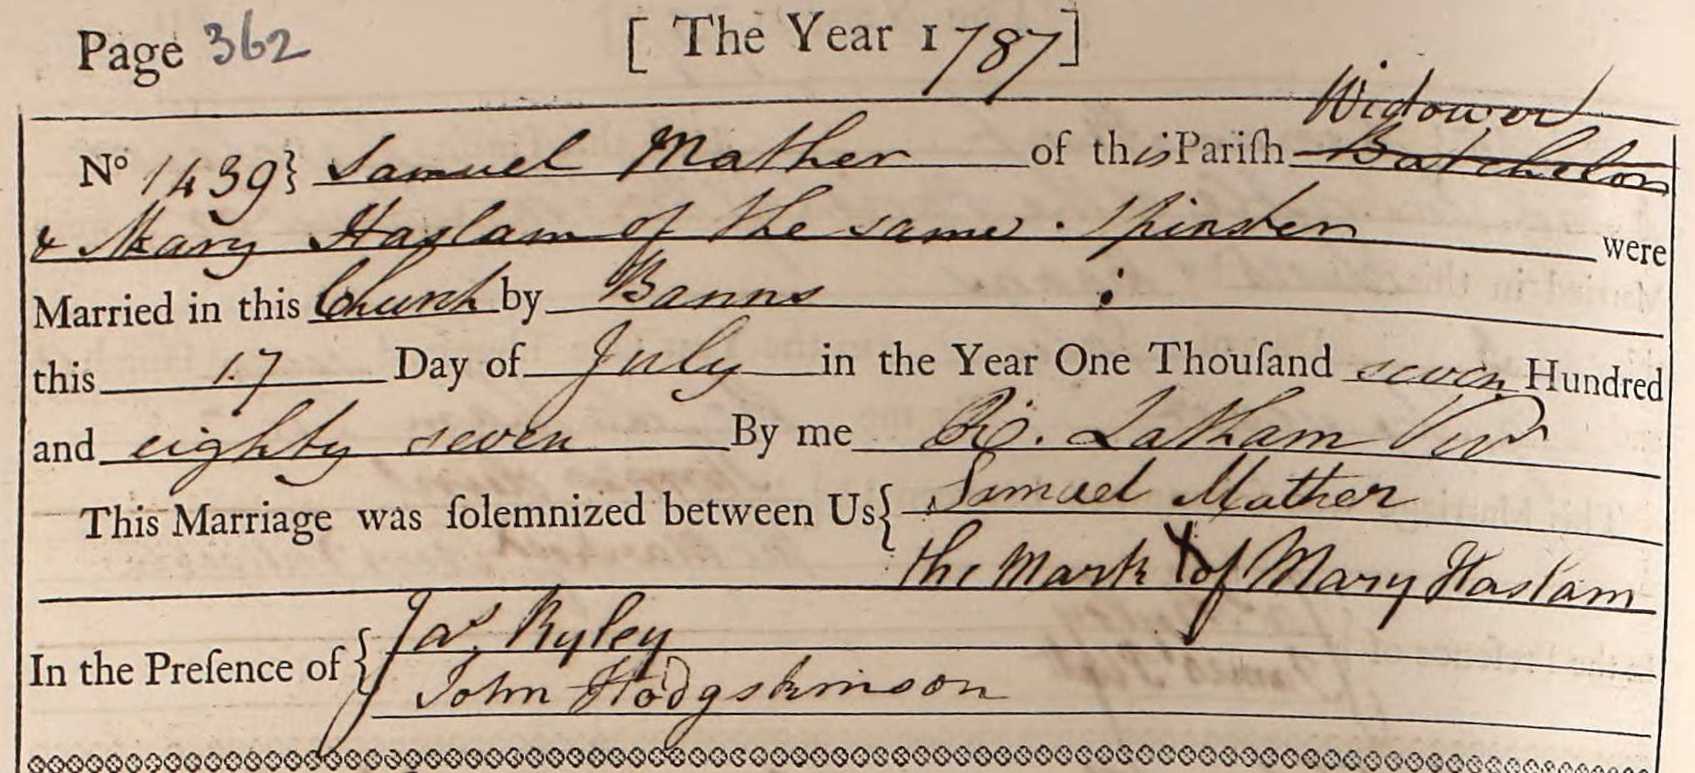 Page 362 [ The Year 1787 ]
Widower
No 1439} Samuel Mather of this Pariſh Batchelor
& Mary Haslam of the same . Spinster were
Married in this Church by Banns
this 17 Day of July in the Year One Thouſand seven Hundred
and eighty seven By me Latham
This Marriage was ſolemnized between Us { Samuel Mather
the Mark X of Mary Haslam
In the Preſence of { Jas. Ryley
John Hodgskinson